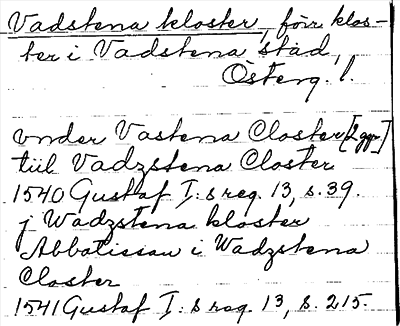 Vadstena kloster, förr klos-
ter i Vadstena stad,
Österg. l.
vnder Vastena Closter [2 ggr]
tiil Vadzstena Closter
1540 Gustaf I:s reg. 13, s. 39.
j Wadzstena kloster
Abbatissan i Wadzstena
Closter
1541 Gustaf I:s reg. 13, s. 215.